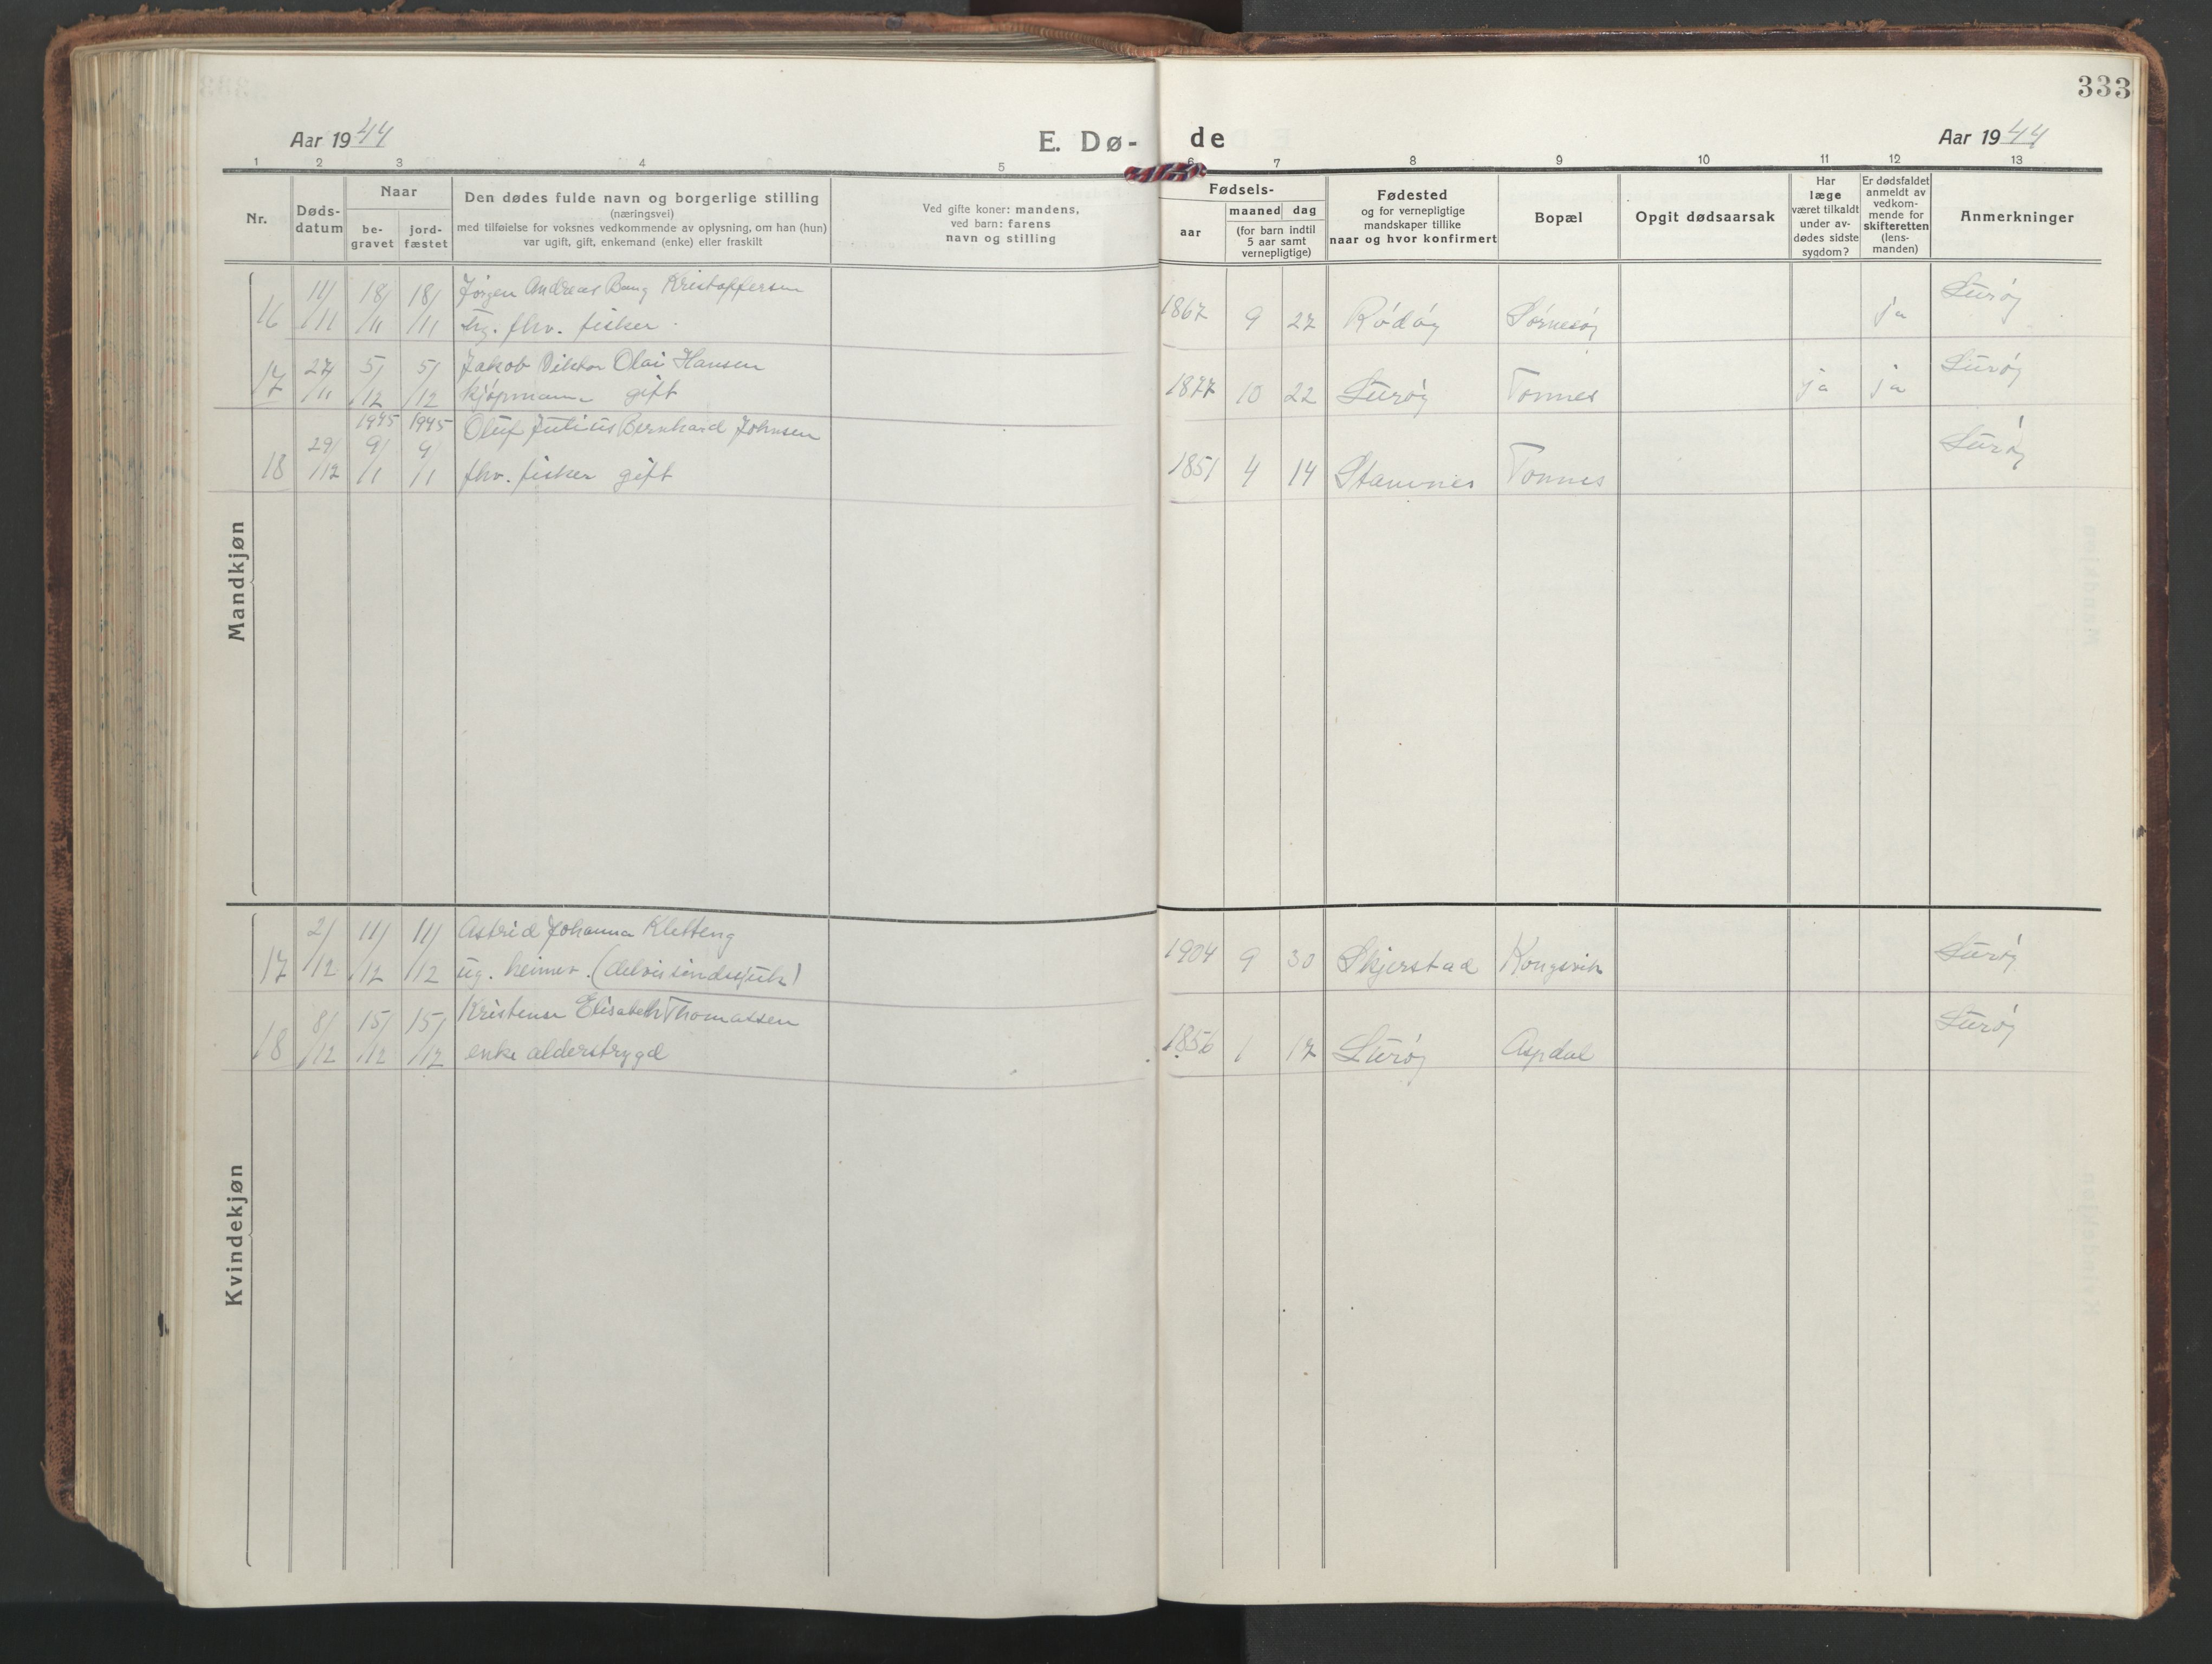 333
Aar 1944
E. Dø-
de
Aar 1944
1 2 3 4 5 6 7 8 9 10 11 12 13
Nr.
Døds-
datum
Naar
be-
gravet
jord-
fæstet
Den dødes fulde navn og borgerlige stilling
(næringsvei)
med tilføielse for voksnes vedkommende av oplysning, om han (hun)
var ugift, gift, enkemand (enke) eller fraskilt
Ved gifte koner: mandens,
ved barn: farens
navn og stilling
Fødsels-
aar
maaned dag
(for barn indtil
5 aar samt
vernepligtige)
Fødested
og for vernepligtige
mandskaper tillike
naar og hvor konfirmert
Bopæl
Opgit dødsaarsak
Har
læge
været tilkaldt
under av-
dødes sidste
sygdom?
Er dødsfaldet
anmeldt av
vedkom-
mende for
skifteretten
(lens-
manden)
Anmerkninger
Mandkjøn
16 11/11 18/11 18/11 Jørgen Andreas Bang Kristoffersen 1867 9 27 Rødøy Sørnesøy ja Lurøy
ug. fhv. fisker.
17 27/11 5/12 5/12 Jakob Viktor Olai Hansen 1877 10 22 Lurøy Tonnes ja ja Lurøy
kjøpmann gift
1945 1945
18 29/12 9/1 9/1 Oluf Julius Bernhard Johnsen 1851 4 14 Stamnes Tonnes Lurøy
fhv. fisker gift
Kvindekjøn
17 2/12 11/12 11/12 Astrid Johanna Kletteng 1904 9 30 Skjerstad Kongsvik Lurøy
ug. heimev. (delvis sindssjuk)
18 8/12 15/12 15/12 Kristense Elisabeth Thomassen 1856 1 17 Lurøy Aspdal Lurøy
enke alderstrygd